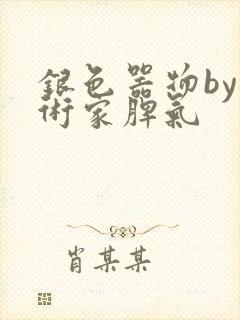 銀色器物by
術家脾氣
肖某某